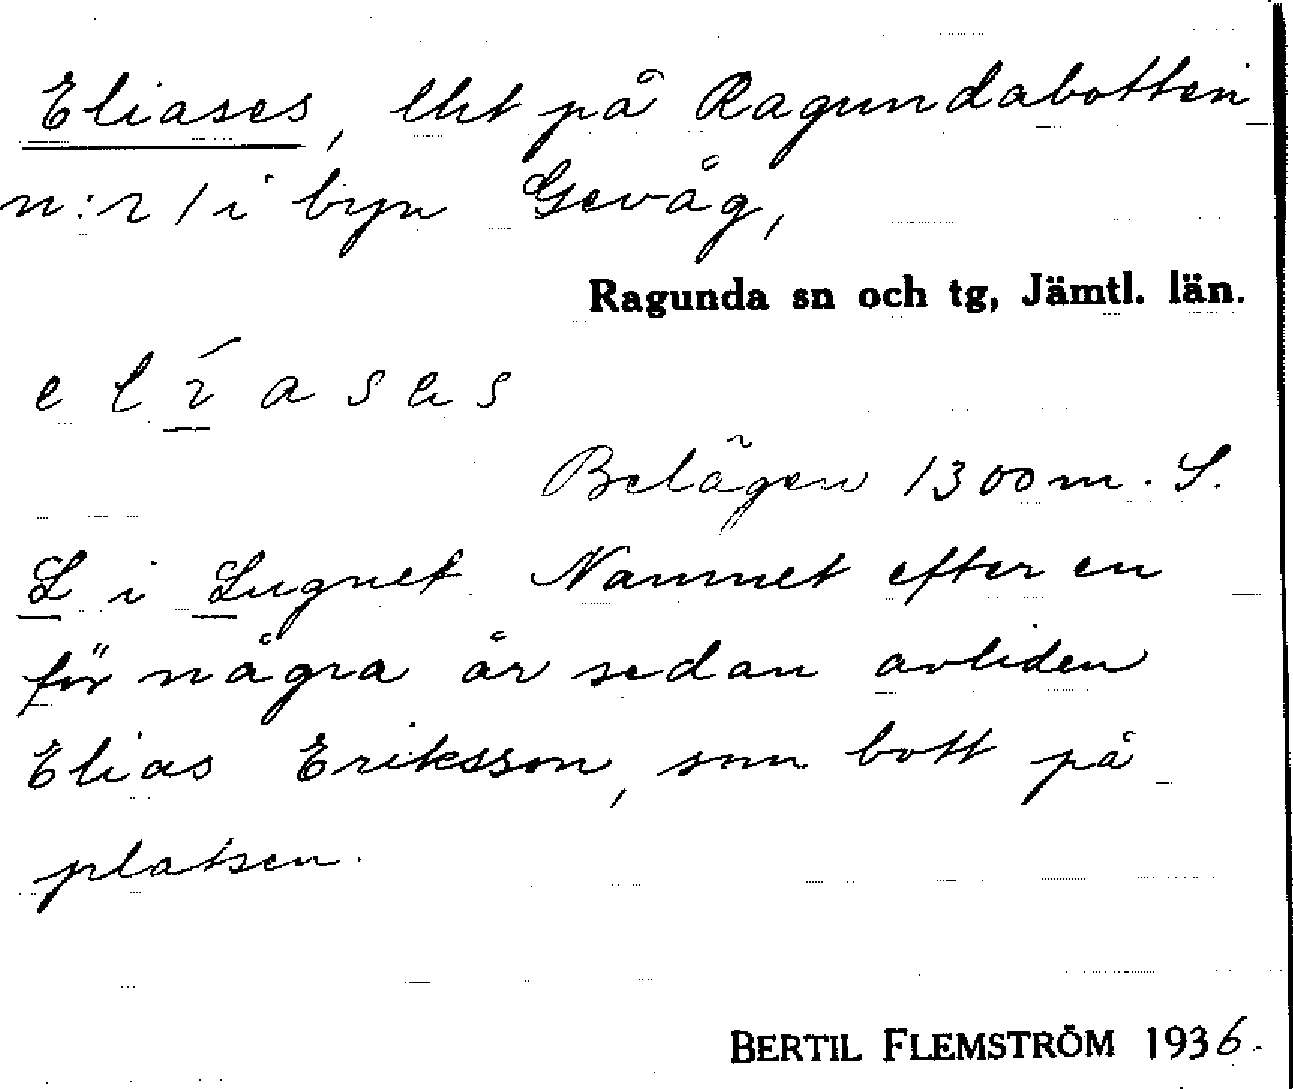 Eliases, lht på Ragundabotten
n:r 1 i byn Gevåg,
Ragunda sn och tg, Jämtl. län.
e l í a s e s
Belägen 1300 m. S.
L i Lugnet Namnet efter en
för några år sedan avliden
Elias Eriksson, som bott på
platsen.
BERTIL FLEMSTRÖM 1936.